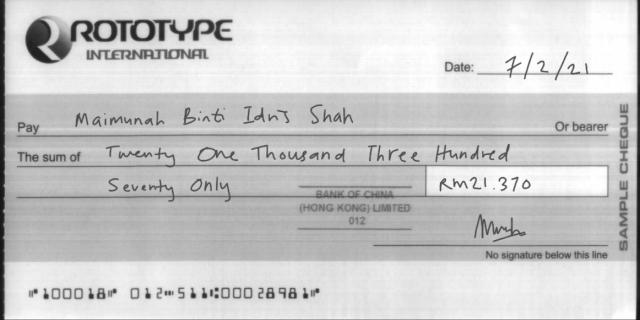 ROTOTYPE
INTERNATIONAL
Date: 7/2/21
Pay Maimunah Binti Idris Shah Or bearer
The sum of Twenty One Thousand Three Hundred
Seventy Only RM21.370
BANK OF CHINA
(HONG KONG) LIMITED
012
No signature below this line
SAMPLE CHEQUE
⑈100018⑈ 012⑉511⑆00028981⑈